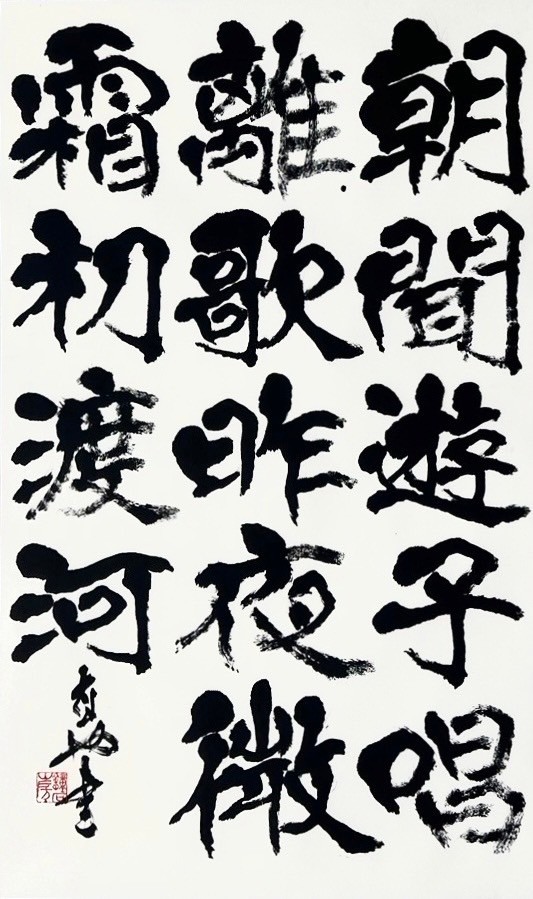 朝聞遊子唱
離歌昨夜微
霜初渡河